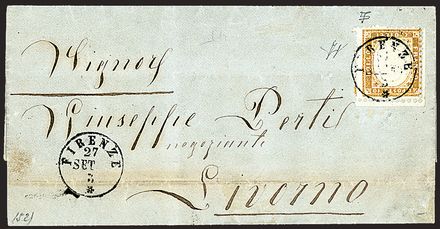 FIRENZE
Signor
Giuseppe Perti
negoziante
FIRENZE
27
SET
3
Livorno